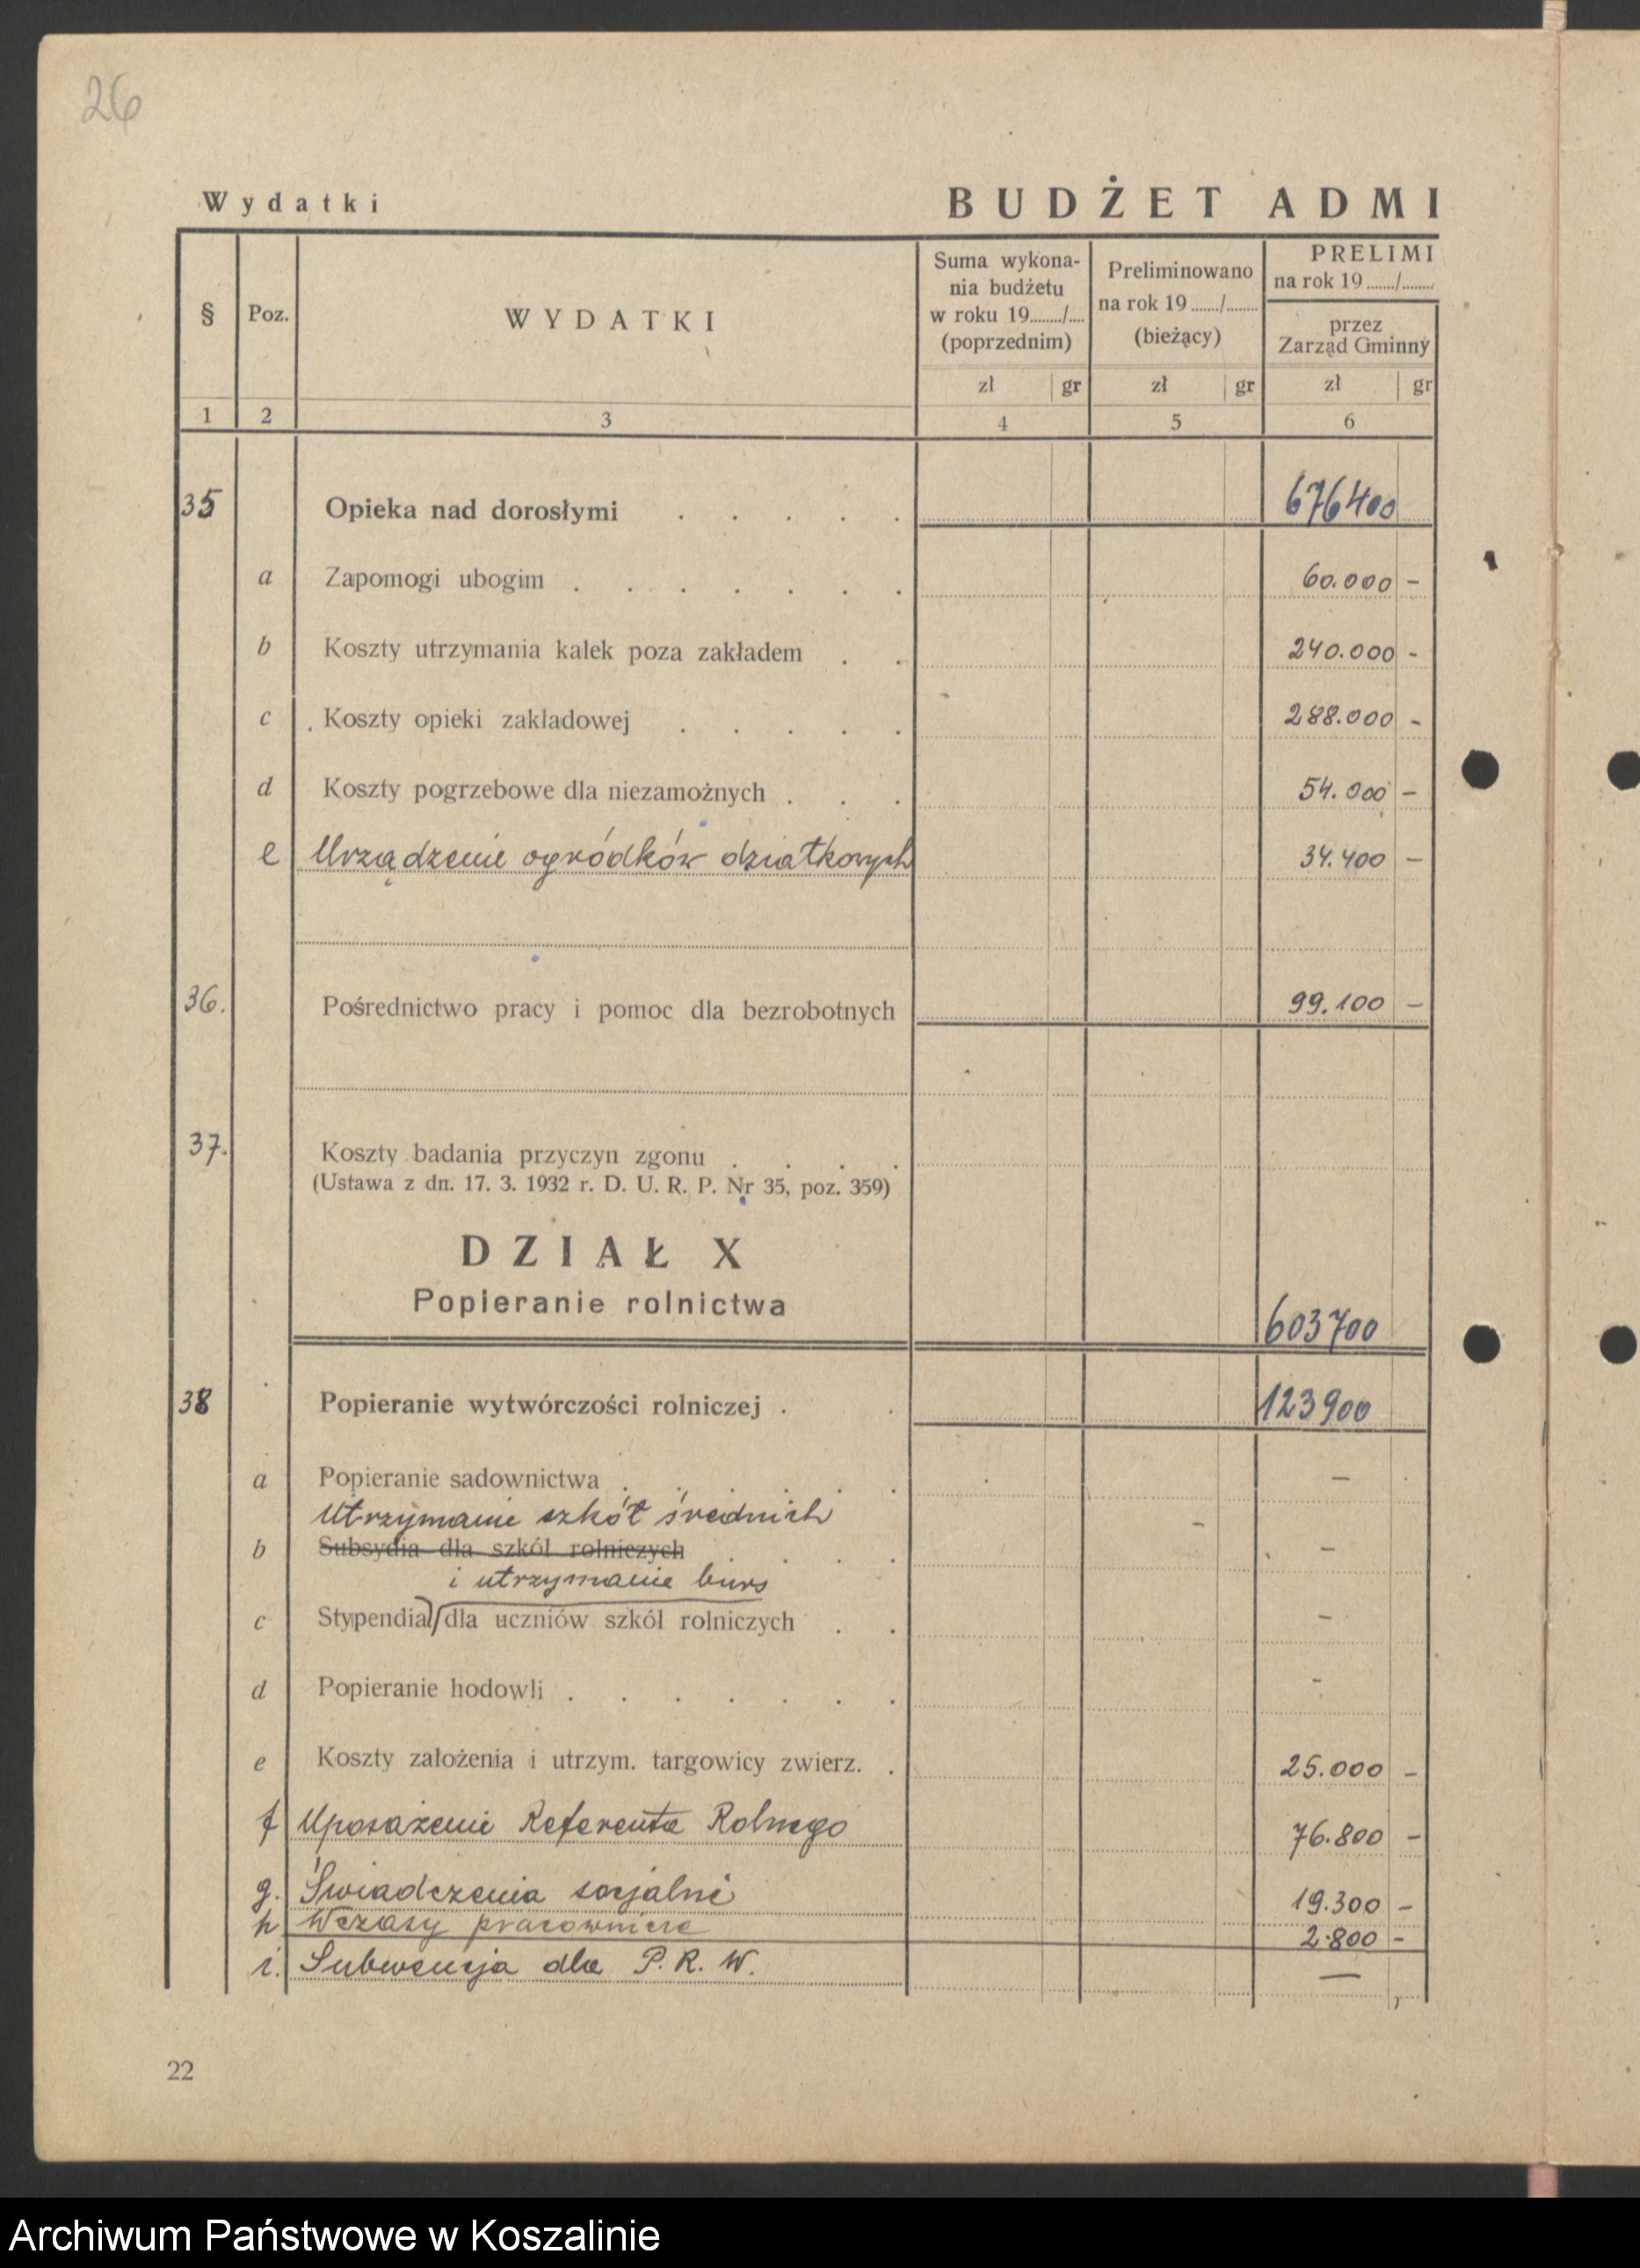 26
Wydatki BUDŻET ADMI
§ Poz. WYDATKI Suma wykona-nia budżetu w roku 19......./.... (poprzednim) Preliminowano na rok 19....../....... (bieżący) PRELIMI na rok 19......./........ przez Zarząd Gminny
zł gr zł gr zł gr
1 2 3 4 5 6
35 Opieka nad dorosłymi . . . . . 676400
a Zapomogi ubogim . . . . . . . 60.000 -
b Koszty utrzymania kalek poza zakładem . . 240.000 -
c Koszty opieki zakładowej . . . . . 288.000 -
d Koszty pogrzebowe dla niezamożnych . . . 54.000 -
e Urządzenie ogródków działkowych 34.400 -
36. Pośrednictwo pracy i pomoc dla bezrobotnych 99.100 -
37. Koszty badania przyczyn zgonu . . . .
(Ustawa z dn. 17. 3. 1932 r. D. U. R. P. Nr 35, poz. 359)
DZIAŁ X
Popieranie rolnictwa 603700
38 Popieranie wytwórczości rolniczej . . 123900
a Popieranie sadownictwa . . . . . . -
Utrzymanie szkół średnich
b Subsydia dla szkół rolniczych . . . . -
i utrzymanie burs
c Stypendia dla uczniów szkół rolniczych . . -
d Popieranie hodowli . . . . . . . -
e Koszty założenia i utrzym. targowicy zwierz. . 25.000 -
f Uposażenie Referenta Rolnego 76.800 -
g. Świadczenia socjalne 19.300 -
h Wczasy pracownicze 2.800 -
i. Subwencja dla P. R. W. -
22
Archiwum Państwowe w Koszalinie